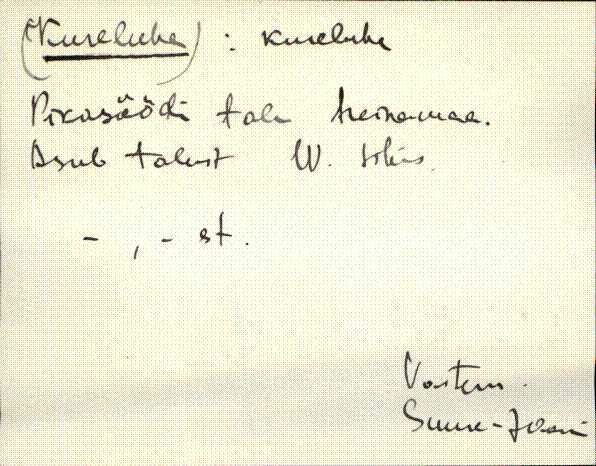 (Kureluhe) : kureluhe
Pikasöödi talu heinamaa.
Asub talust W. 
- , - st.
Vastem.
Suure-Jaani